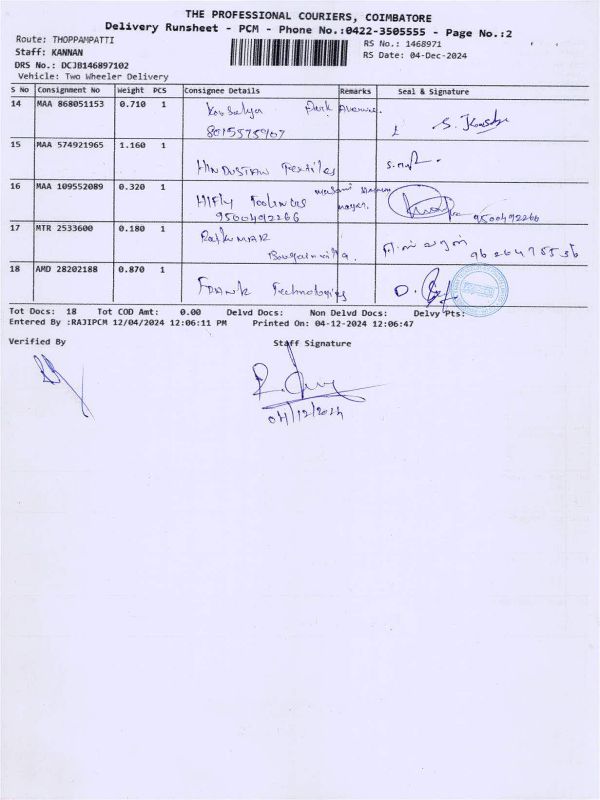 THE PROFESSIONAL COURIERS, COIMBATORE
Delivery Runsheet - PCM - Phone No.:0422-3505555 - Page No.:2
Route: THOPPAMPATTI
RS No.: 1468971
Staff: KANNAN
RS Date: 04-Dec-2024
DRS No.: DCJB146897102
Vehicle: Two Wheeler Delivery
S No Consignment No Weight PCS Consignee Details Remarks Seal & Signature
14 MAA 868051153 0.710 1 Kousalya Park Avenue. S. Kousalya
8015575907
15 MAA 574921965 1.160 1
HINDUSTAN Textiles
16 MAA 109552089 0.320 1
HIFly nagar.
9500492266 9500492266
17 MTR 2533600 0.180 1 RAJKUMAR
9626478536
18 AMD 28202188 0.870 1
FRANK Technologies D.
Tot Docs: 18 Tot COD Amt: 0.00 Delvd Docs: Non Delvd Docs: Delvy Pts:
Entered By :RAJIPCM 12/04/2024 12:06:11 PM Printed On: 04-12-2024 12:06:47
Verified By Staff Signature
04/12/2024